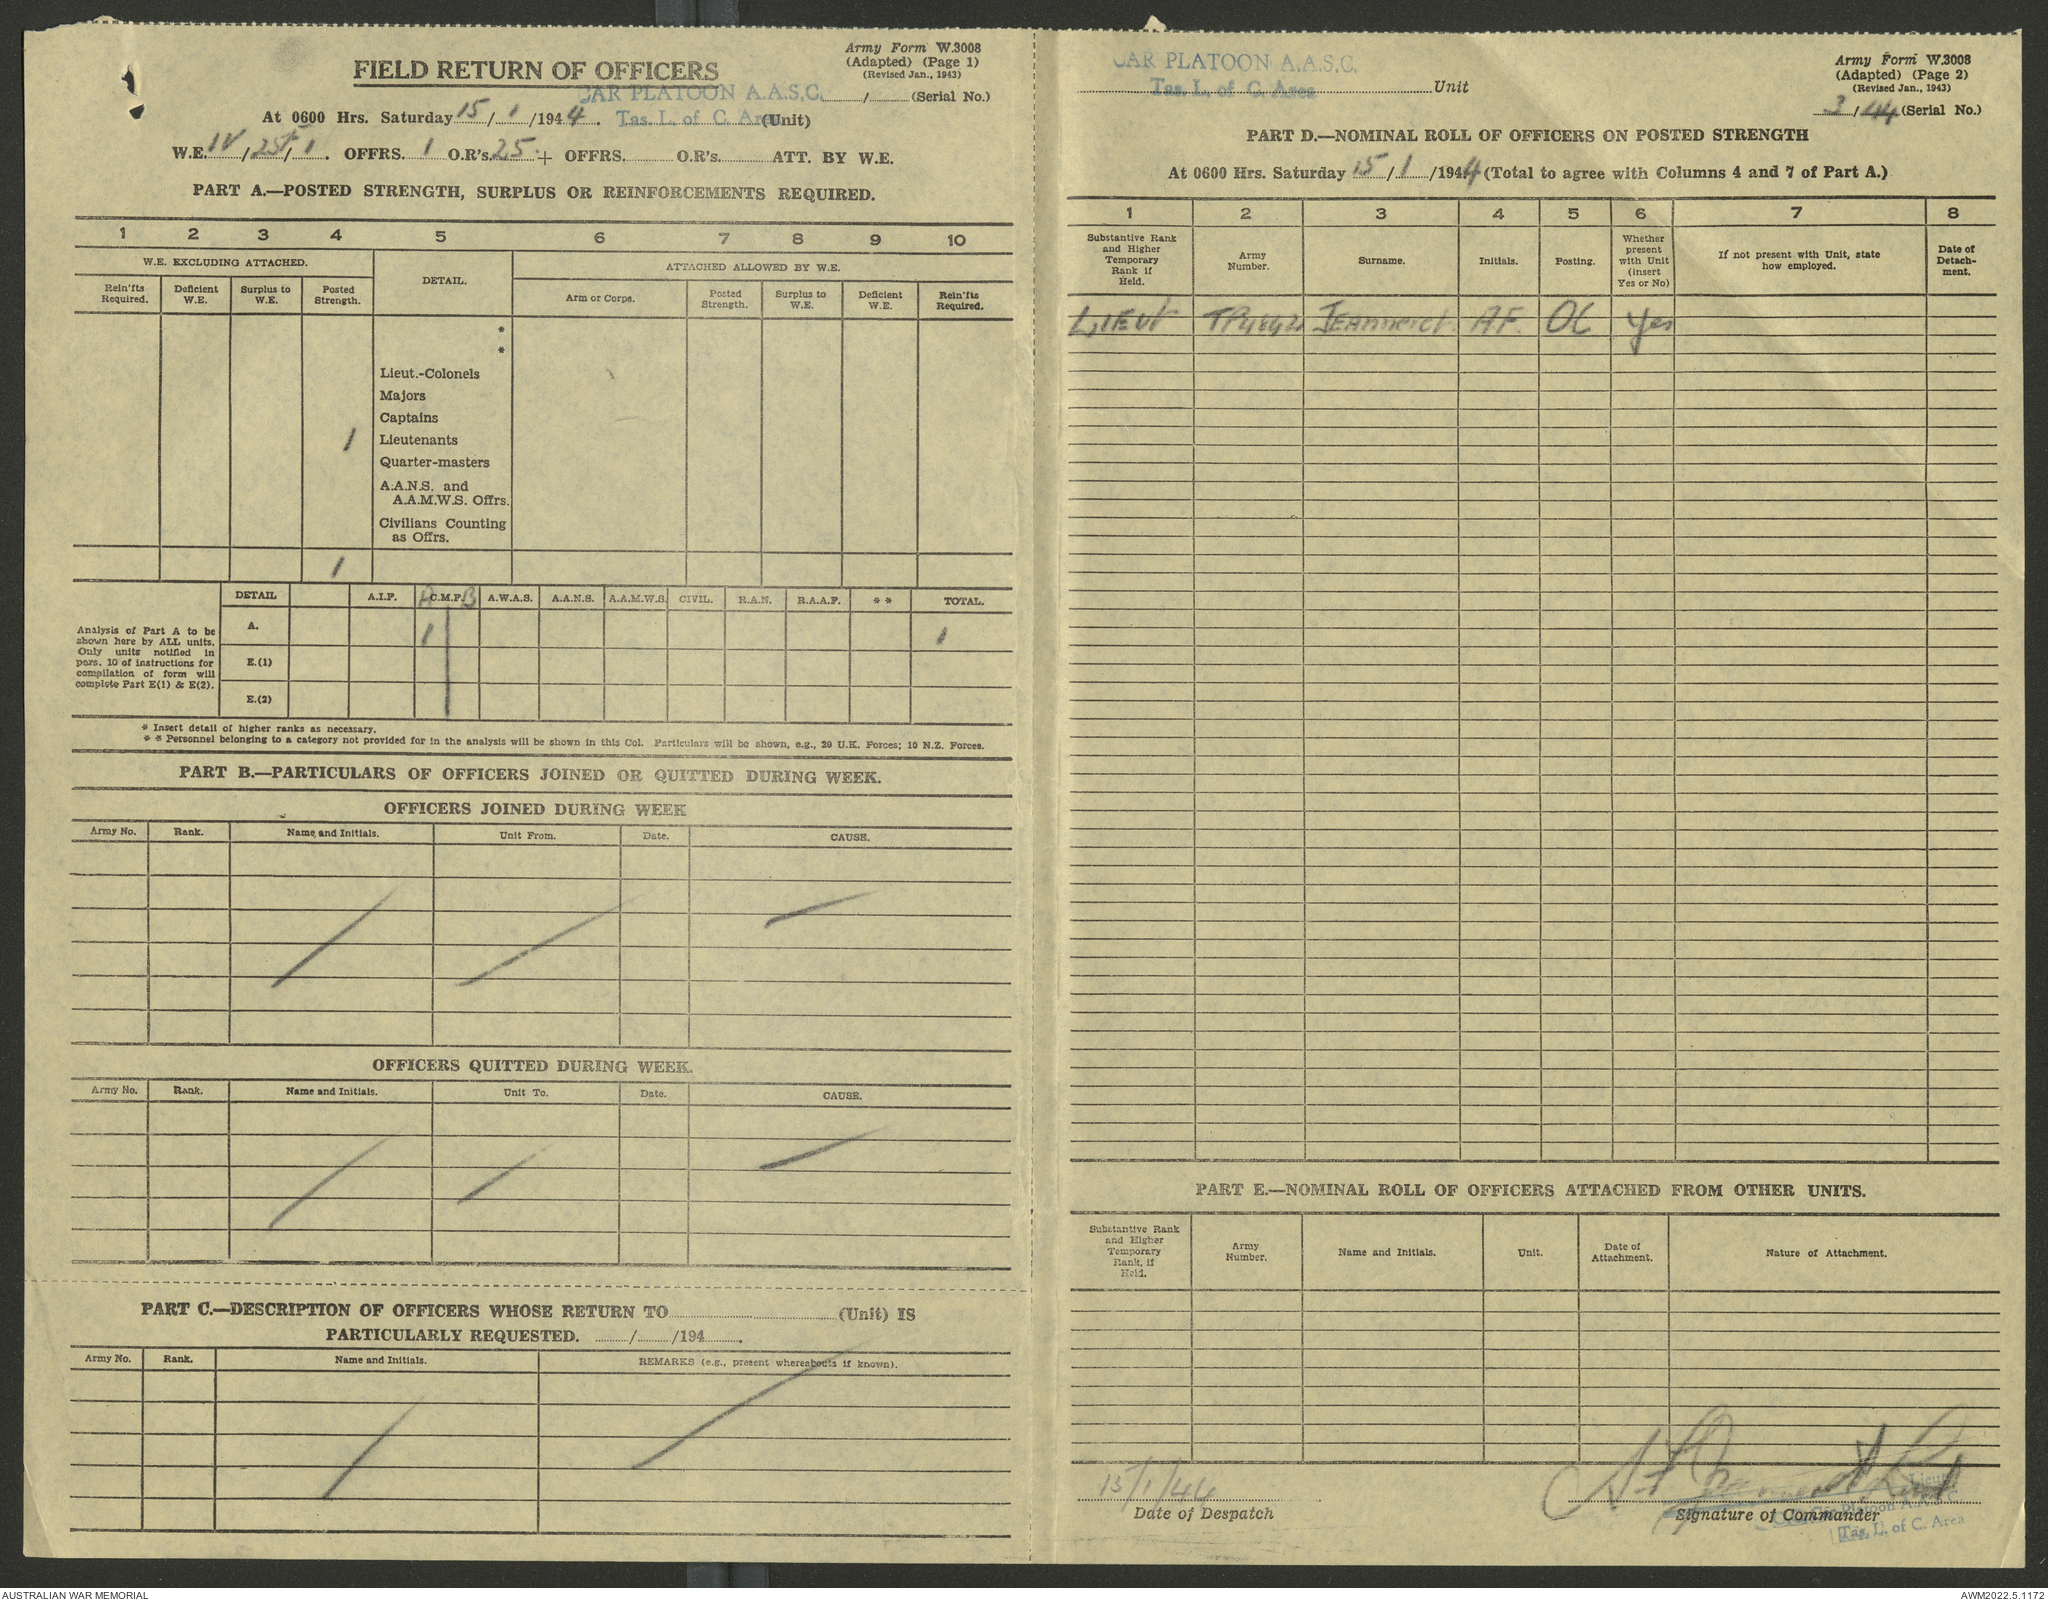 Army Form W.3008
(Adapted) (Page 1)
(Revised Jan., 1943)
FIELD RETURN OF OFFICERS
CAR PLATOON A.A.S.C. / (Serial No.)
At 0600 Hrs. Saturday 15 / 1 /1944. Tas. L. of C. Area (Unit)
W.E. IV / 25 / 1 . OFFRS. 1 O.R's. 25 + OFFRS. O.R's. ATT. BY W.E.
PART A.—POSTED STRENGTH, SURPLUS OR REINFORCEMENTS REQUIRED.
1 2 3 4 5 6 7 8 9 10
W.E. EXCLUDING ATTACHED. DETAIL. ATTACHED ALLOWED BY W.E.
Rein'fts Required. Deficient W.E. Surplus to W.E. Posted Strength. Arm or Corps. Posted Strength. Surplus to W.E. Deficient W.E. Rein'fts Required.
*
*
Lieut.-Colonels
Majors
Captains
1 Lieutenants
Quarter-masters
A.A.N.S. and
A.A.M.W.S. Offrs.
Civilians Counting
as Offrs.
1
DETAIL A.I.F. A C.M.F. B A.W.A.S. A.A.N.S. A.A.M.W.S. CIVIL. R.A.N. R.A.A.F. * * TOTAL.
Analysis of Part A to be
shown here by ALL units.
Only units notified in
para. 10 of instructions for
compilation of form will
complete Part E(1) & E(2).
A. 1 1
E.(1)
E.(2)
* Insert detail of higher ranks as necessary.
* * Personnel belonging to a category not provided for in the analysis will be shown in this Col. Particulars will be shown, e.g., 20 U.K. Forces; 10 N.Z. Forces.
PART B.—PARTICULARS OF OFFICERS JOINED OR QUITTED DURING WEEK.
OFFICERS JOINED DURING WEEK
Army No. Rank. Name and Initials. Unit From. Date. CAUSE.
OFFICERS QUITTED DURING WEEK.
Army No. Rank. Name and Initials. Unit To. Date. CAUSE.
PART C.—DESCRIPTION OF OFFICERS WHOSE RETURN TO (Unit) IS
PARTICULARLY REQUESTED. / /194 .
Army No. Rank. Name and Initials. REMARKS (e.g., present whereabouts if known).
CAR PLATOON A.A.S.C.
Tas. L. of C. Area Unit
Army Form W.3008
(Adapted) (Page 2)
(Revised Jan., 1943)
3 / 44 (Serial No.)
PART D.—NOMINAL ROLL OF OFFICERS ON POSTED STRENGTH
At 0600 Hrs. Saturday 15 / 1 /1944 (Total to agree with Columns 4 and 7 of Part A.)
1 2 3 4 5 6 7 8
Substantive Rank and Higher Temporary Rank if Held. Army Number. Surname. Initials. Posting. Whether present with Unit (insert Yes or No) If not present with Unit, state how employed. Date of Detach-ment.
LIEUT Jeanneret A.F. OC Yes
PART E.—NOMINAL ROLL OF OFFICERS ATTACHED FROM OTHER UNITS.
Substantive Rank and Higher Temporary Rank, if Held. Army Number. Name and Initials. Unit. Date of Attachment. Nature of Attachment.
15/1/44 A F Jeanneret Lieut
Lieut.
Date of Despatch Signature of Commander
Car Platoon A.A.S.C.
Tas. L. of C. Area
AUSTRALIAN WAR MEMORIAL AWM2022.5.1172